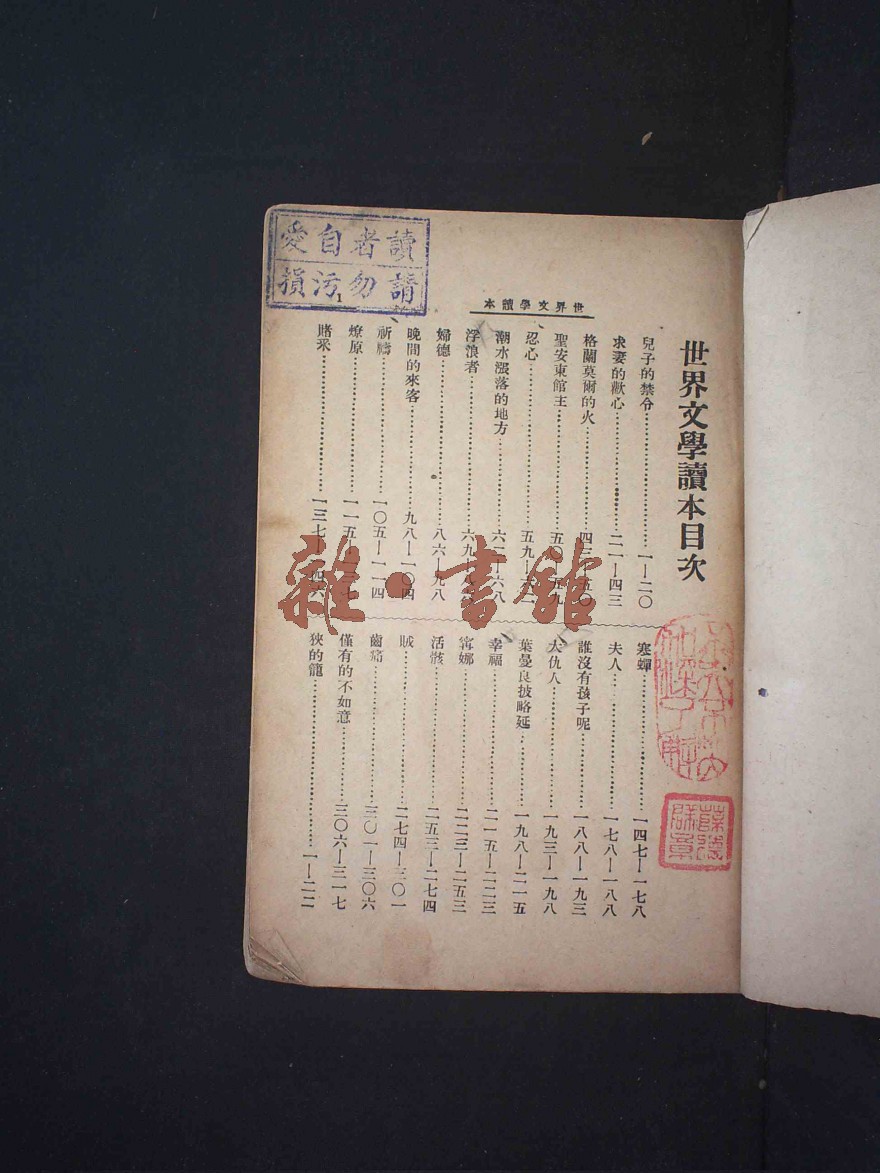 讀者自愛
請勿污損
世界文學讀本
1
世界文學讀本目次
兒子的禁令 一—二〇
求妻的歡心 二一—四三
格蘭莫爾的火 四三—五〇
聖安東館主 五〇—五九
忍心 五九—六一
潮水漲落的地方 六一—六八
浮浪者 六九—八六
婦德 八六—九八
晚間的來客 九八—一〇四
祈禱 一〇五—一一四
燎原 一一五—
賭采 一三七—一四六
寒蟬 一四七—一七八
夫人 一七八—一八八
誰沒有孩子呢 一八八—一九三
大仇人 一九三—一九八
葉曼良披略延 一九八—二一五
幸福 二一五—二二三
甯娜 二二三—二五三
活骸 二五三—二七四
賊 二七四—三〇一
齒痛 三〇一—三〇六
僅有的不如意 三〇六—三一七
狹的籠 一—二二
雜·書館